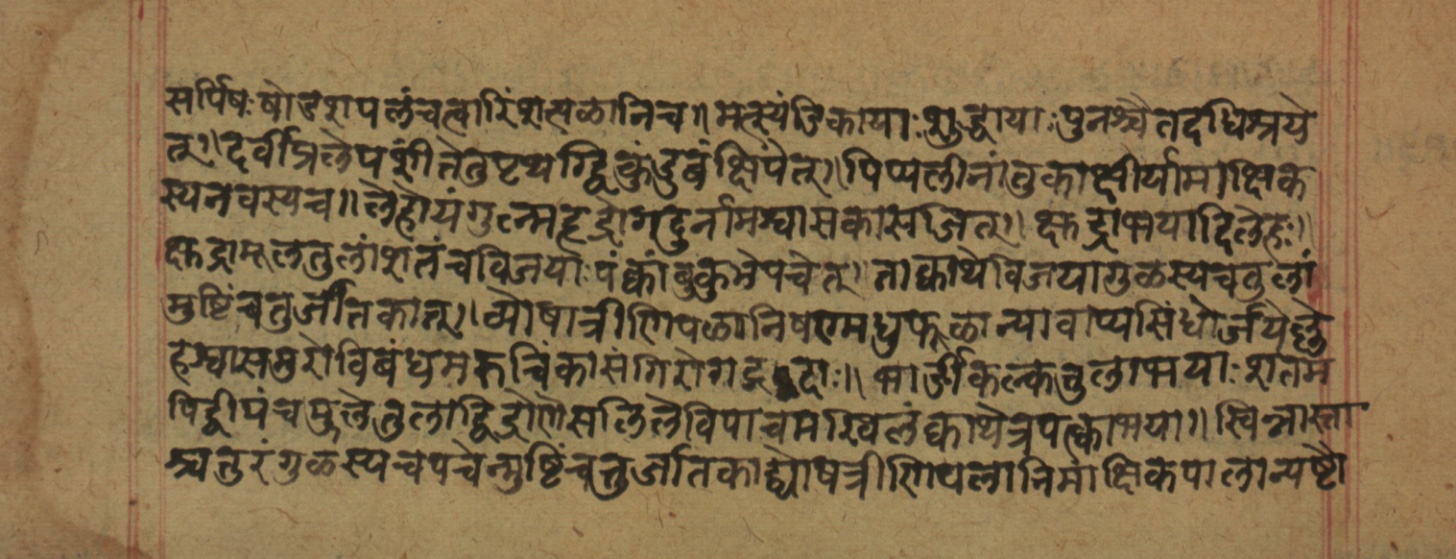 सर्पिषः षोडशपलं चत्वारिंशत्पळानि च॥ मत्स्यंडिकायाः शुद्धायाः पुनश्चैतदधिश्रये
त्॥ दर्वीप्रलेपशीते तु पृथग्द्विकुंडुबं क्षिपेत्॥ पिप्पलीनां तुकाक्षीर्यामाक्षिक
स्य नवस्य च॥ लेहोयं गुल्महृद्रोगदुर्नामश्वासकासजित्॥ क्षुद्राभयादिलेहः॥
क्षुद्रामूलतुलां शतं च विजयाः पंक्कांबुकुंभे पचेत् ताक्काथे विजयागुळस्य च तुलां
मुष्टिं चतुर्जातिकात्॥ व्योषात्रीणि पळानि षण्मधुफळान्यावाप्य सिंधोर्जयेद्धु
हश्वास विबंधमरुचिं कासं
भार्ङीकल्कतुलाभयाः शतम
पिद्वीपंचमूले तुलां द्विद्रोणे सलिले विपाचमखिलं क्काथेत्रपक्काभया॥ स्विन्नास्ता
श्चतुरं गुळस्य च पचेन्मुष्टिं चतुर्जातकाद्व्योषत्रीणि पलानि माक्षिकपालान्यष्टौ